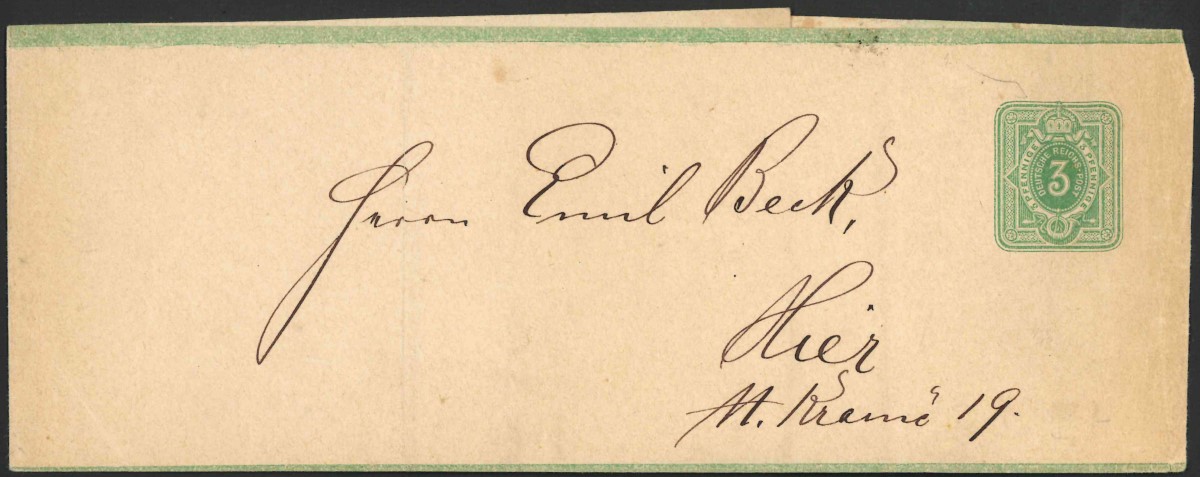 3 PFENNIGE
3 PFENNIGE
DEUTSCHE REICHS-POST
3
Herrn Emil Beck,
Hier
19.